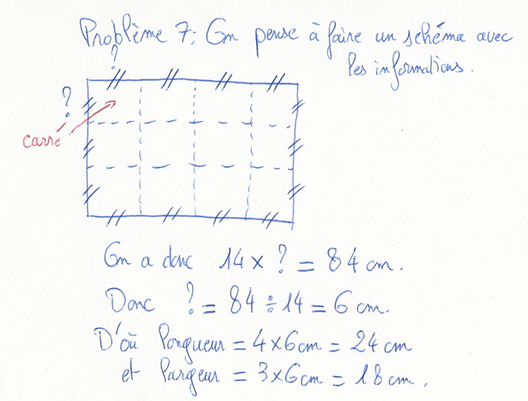 Problème 7: On pense à faire un schéma avec
les informations.
?
?
carré
On a donc 14 x ? = 84 cm.
Donc ? = 84 ÷ 14 = 6 cm.
D'où longueur = 4 x 6 cm = 24 cm
et largeur = 3 x 6 cm = 18 cm.